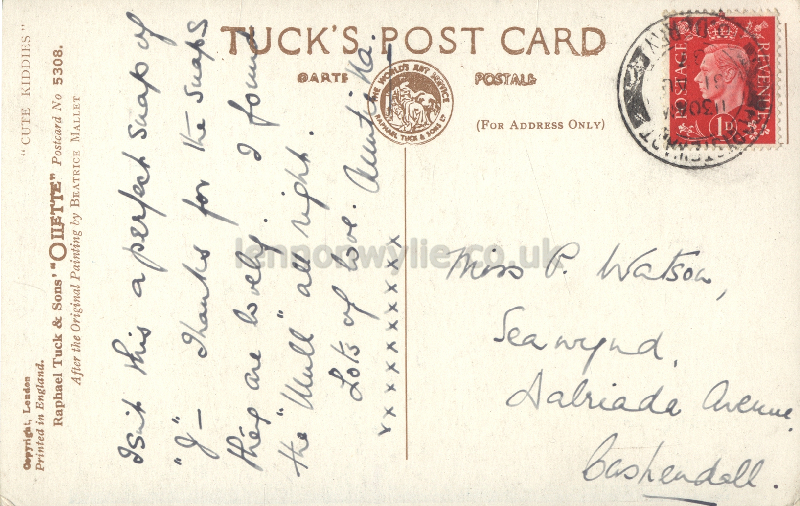 TUCK'S POST CARD
CARTE POSTALE
(FOR ADDRESS ONLY)
THE WORLD'S ART SERVICE
RAPHAEL TUCK & SONS LTD
POSTAGE REVENUE
1D
1130AM
"CUTE KIDDIES"
Raphael Tuck & Sons' "OILETTE" Postcard No 5308.
After the Original Painting by BEATRICE MALLET
Copyright, London
Printed in England.
Isn't this a perfect snap of
"J" – Thanks for the snaps
they are lovely. I found
the "Mull" all right.
Lots of love. Auntie
x x x x x x x x x x
Miss P. Watson,
Seawynd,
Dalriada Avenue,
Cushendall.
lennonwylie.co.uk